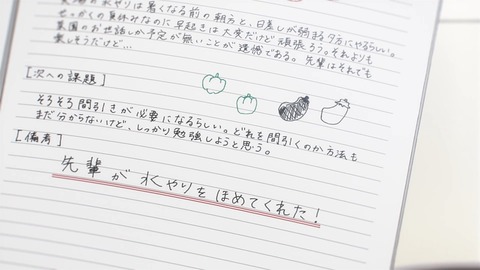 水やりは暑くなる前の朝方と、日差しが弱まる夕方にやるらしい。
せっかくの夏休みなのに早起きは大変だけど頑張ろう。それよりも
菜園のお世話しか予定が無いことが遺憾である。先輩はそれでも
楽しそうだけど…
[次への課題]
そろそろ間引きが必要になるらしい。どれを間引くのか方法も
まだ分からないけど、しっかり勉強しようと思う。
[備考]
先輩が水やりをほめてくれた!